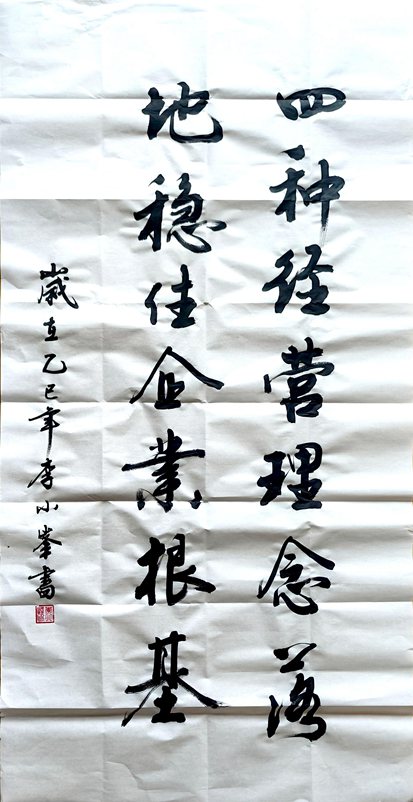 四种经营理念落
地稳住企業根基
歲在乙巳年李小峯書